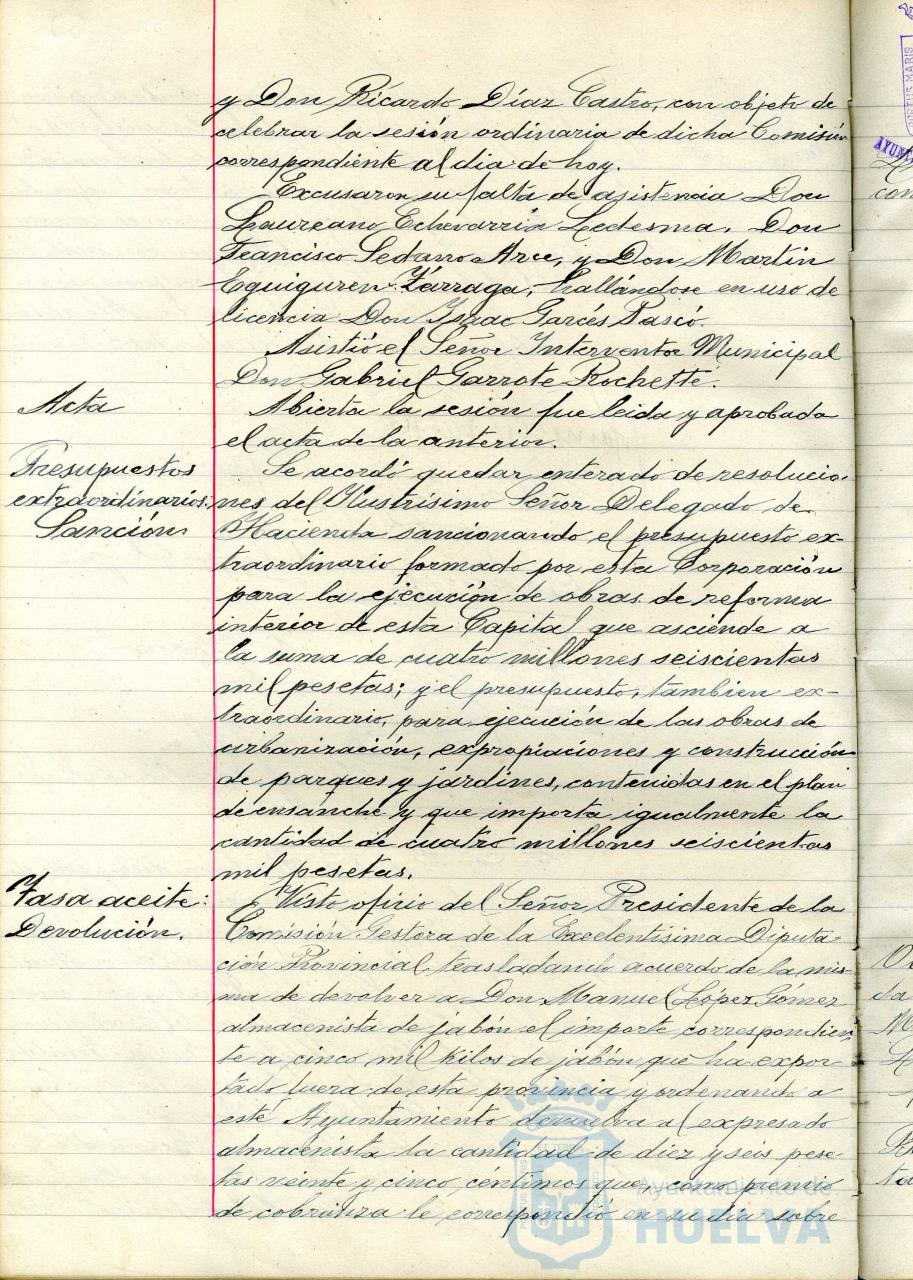 y Don Ricardo Díaz Castro, con objeto de
celebrar la sesión ordinaria de dicha Comisión
correspondiente al dia de hoy.
Excusaron su falta de asistencia Don
Laureano Echevarría Ledesma, Don
Francisco Sedano Arce, y Don Martin
Eguiguren Zárraga, hallándose en uso de
licencia Don Isaac Garcés Pascó.
Asistió el Señor Interventor Municipal
Don Gabriel Garrote Rochette.
Acta
Abierta la sesión fue leida y aprobada
el acta de la anterior.
Presupuestos
extraordinarios:
Sanción
Se acordó quedar enterado de resolucio-
nes del Ilustrísimo Señor Delegado de
Hacienda sancionando el presupuesto ex-
traordinario formado por esta Corporación
para la ejecución de obras de reforma
interior de esta Capital que asciende a
la suma de cuatro millones seiscientas
mil pesetas; y el presupuesto, tambien ex-
traordinario, para ejecución de las obras de
urbanización, expropiaciones y construcción
de parques y jardines, contenidas en el plan
de ensanche y que importa igualmente la
cantidad de cuatro millones seiscientas
mil pesetas.
Tasa aceite:
Devolución.
Visto oficio del Señor Presidente de la
Comisión Gestora de la Excelentisima Diputa-
ción Provincial, trasladando acuerdo de la mis-
ma de devolver a Don Manuel López Gómez
almacenista de jabón el importe correspondien-
te a cinco mil kilos de jabón que ha expor-
tado fuera de esta provincia y ordenando a
esté Ayuntamiento devuelva al expresado
almacenista la cantidad de diez y seis pese-
tas veinte y cinco céntimos que, como premio
de cobranza le correspondió en su dia sobre
Ayuntamiento de
HUELVA